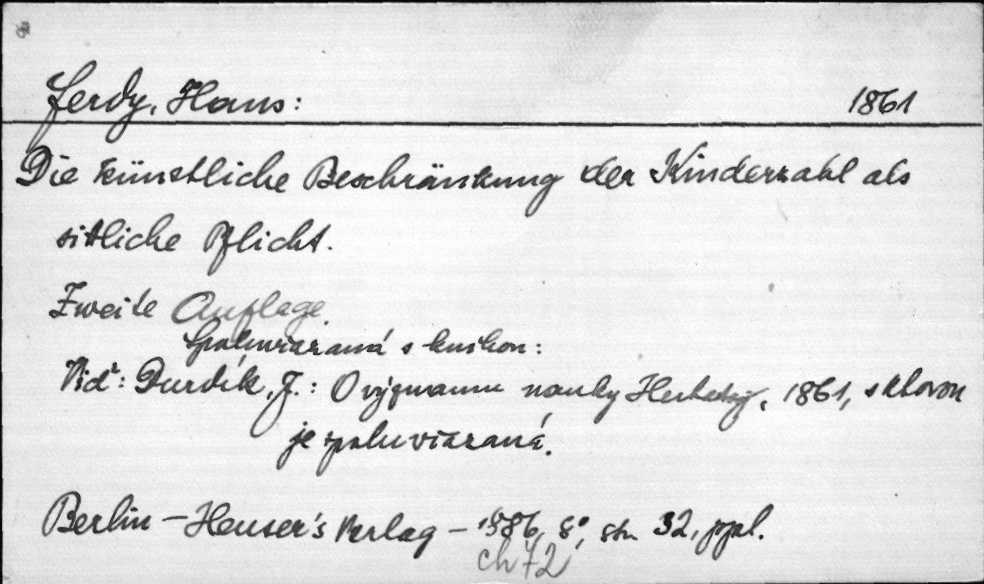 Ferdy, Hans: 1861
Die künstliche Beschränkung der Kinderzahl als
sittliche Pflicht.
Zweite Auflage.
Spoluviazaná s knihou:
Viď: Durdík, J.: O významu nauky Herbartovy, 1861, s ktorou
je spoluviazaná.
Berlin – Heuser's Verlag – 1886, 8°, str. 32, ppl.
ch 72